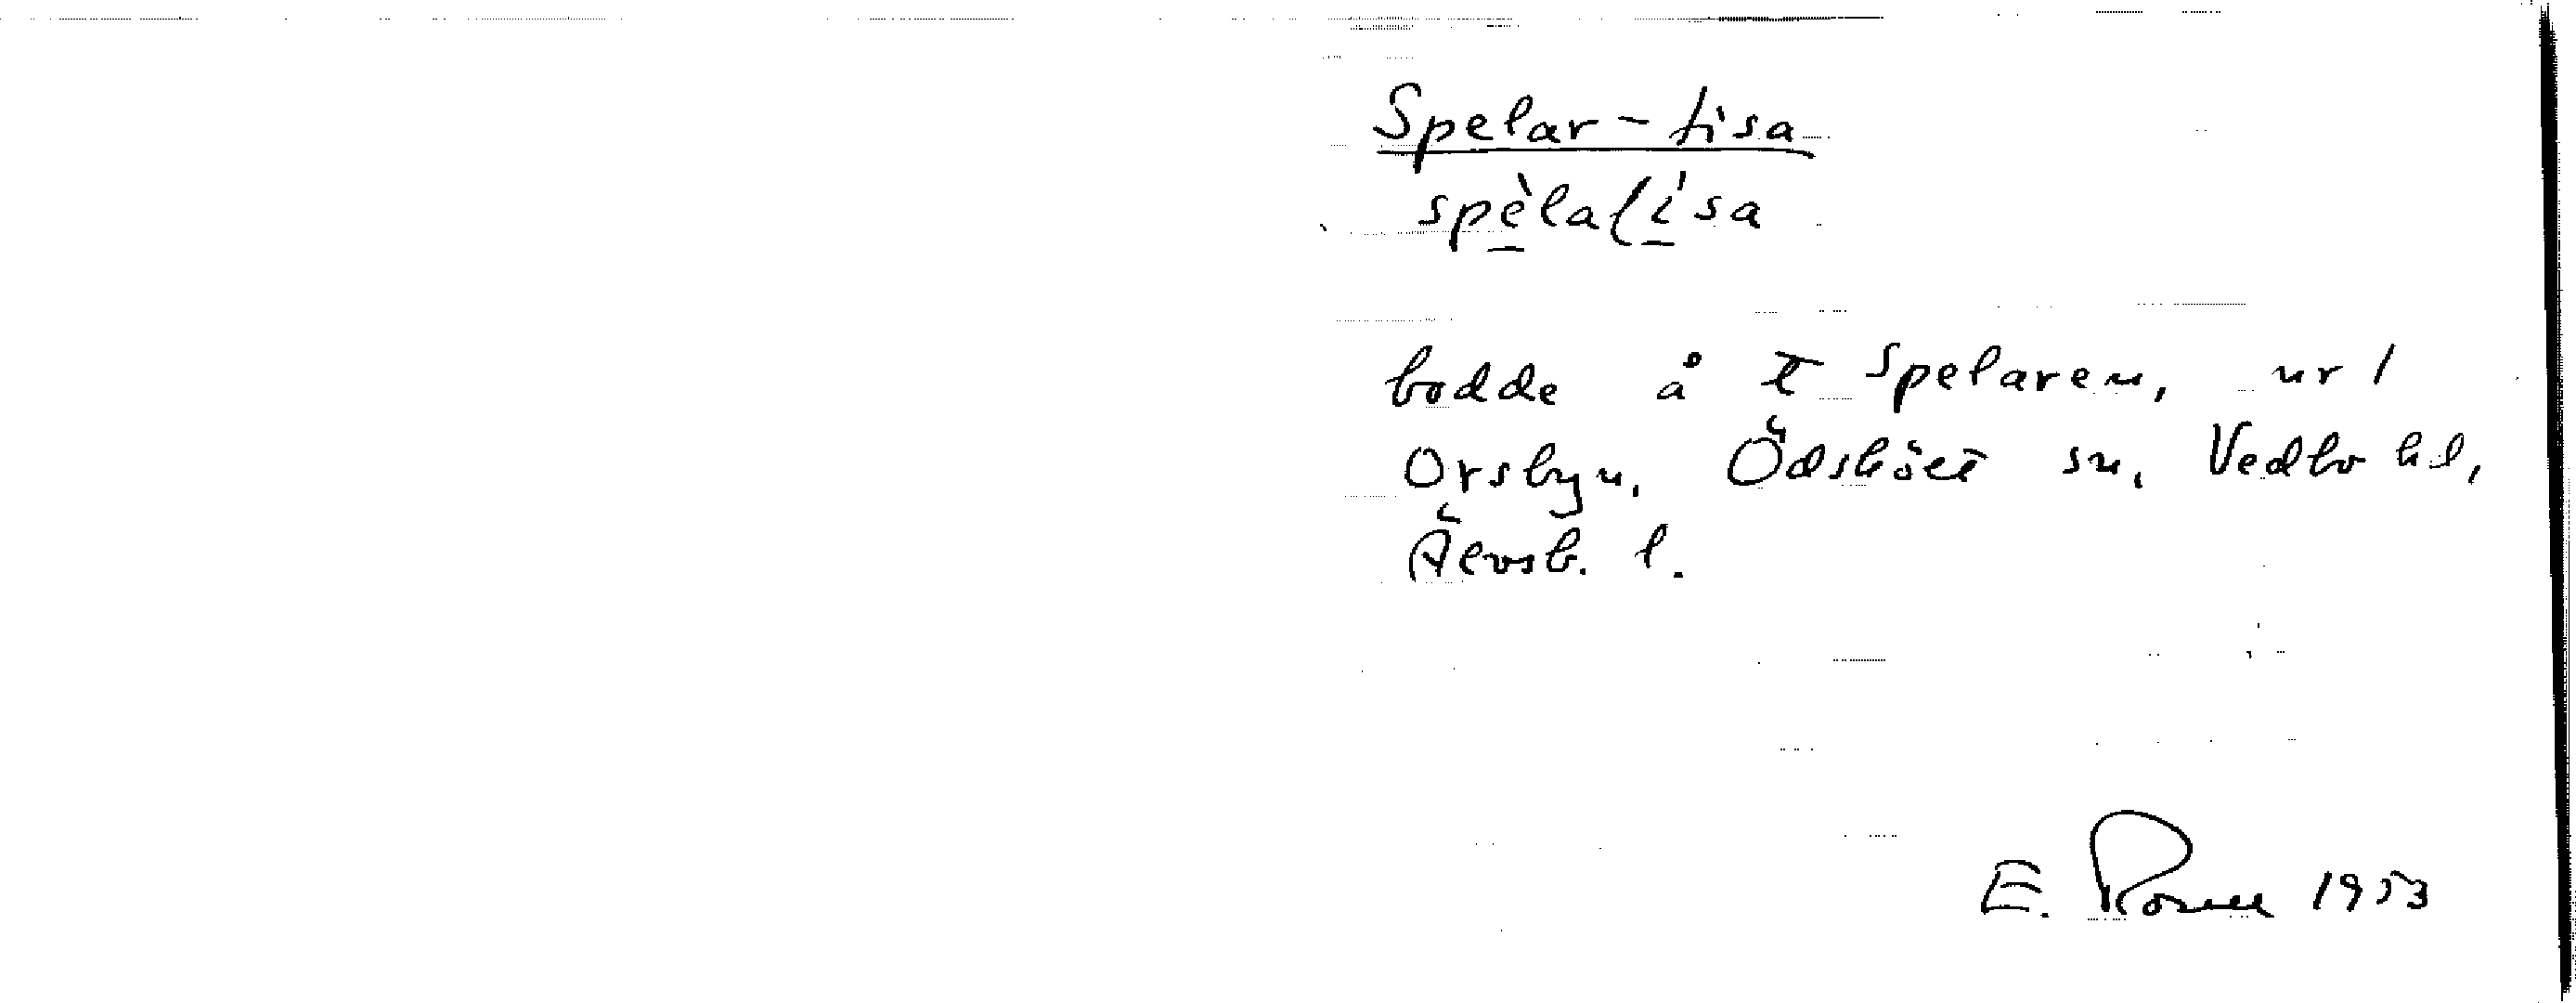 Spelar-Lisa
spèlalísa
bodde å t Spelaren, nr 1
Orsbyn, Ödskölt sn, Vedbo hd,
Älvsb. l.
E. 1953